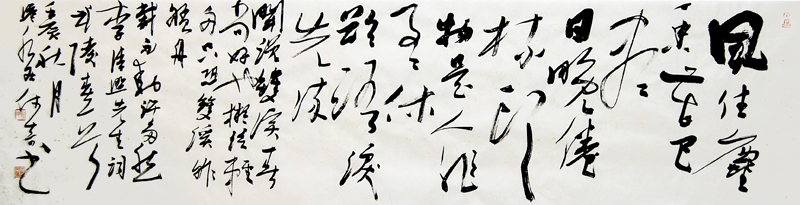 風住塵
香花已
尽
日晚倦
梳頭
物是人非
事々休
欲語淚
先流
聞說雙溪春
尚好也擬泛輕
舟只恐雙溪舴
艋舟
載不動許多愁
李清照先生詞
武陵春
秋月
書